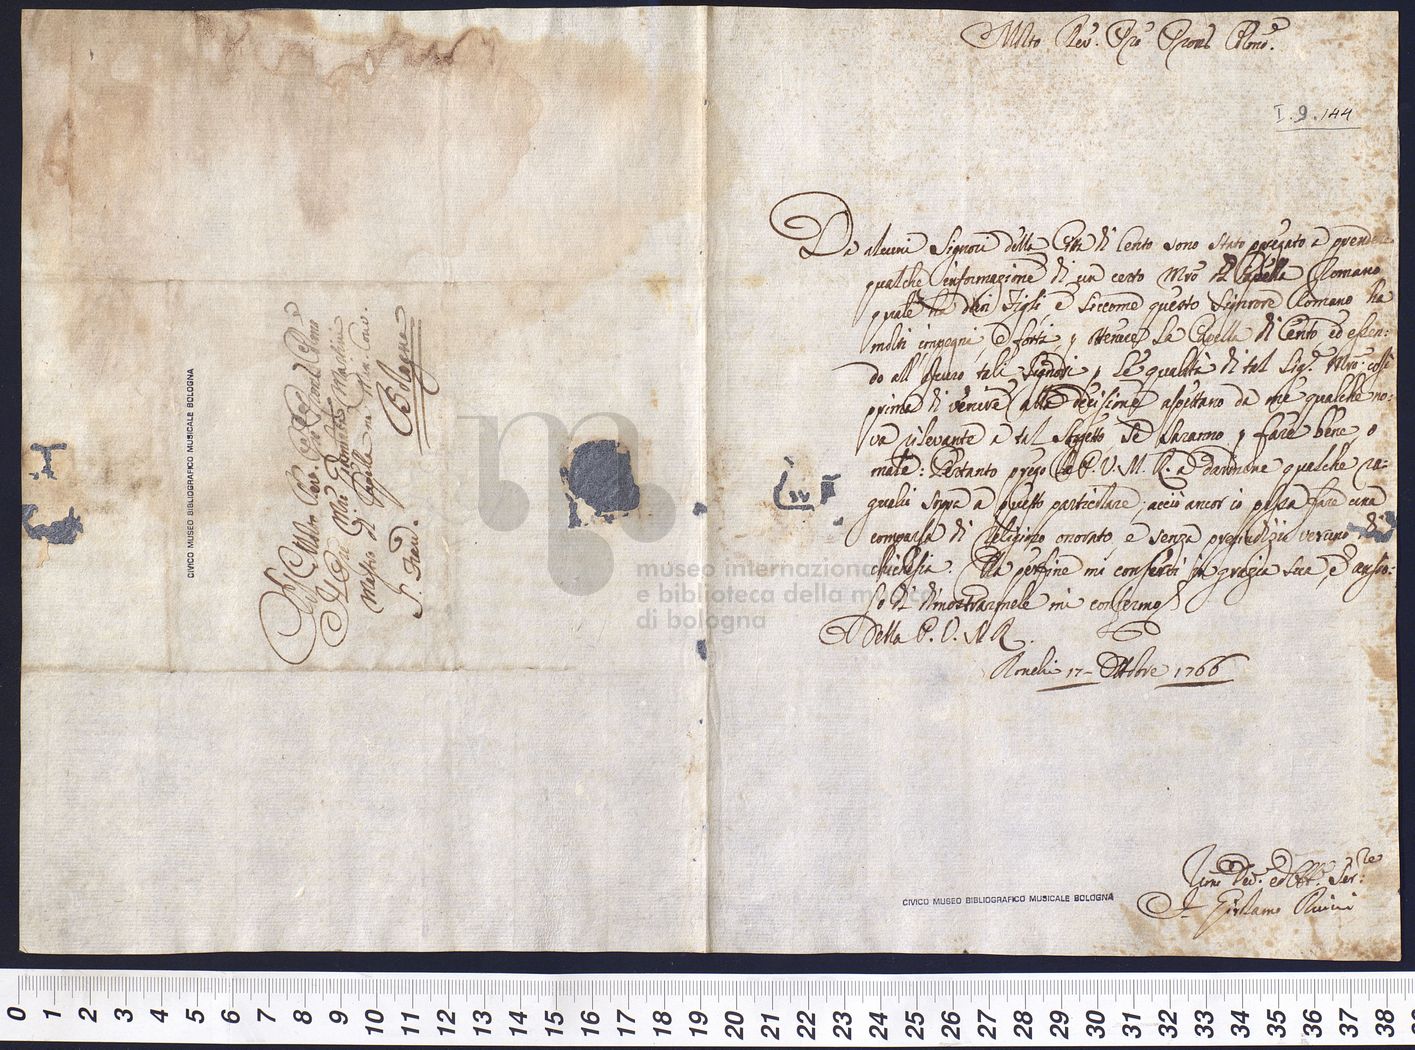 Al Molto Rev. Pre
Il Pre Mro Giambatta Martini
Mastro di Capella ne Min. Conv.
S. Fran.
Bologna
CIVICO MUSEO BIBLIOGRAFICO MUSICALE BOLOGNA
Mlto Rev. Pre Prone Colmo.
I. 9. 144
Da alcuni Signori della Città di Cento sono stato pregato a prendere
qualche informazione di un certo Mro di Capella Romano
quale ha due Figli, e siccome questo Signore Romano ha
molti impegni, e forti p ottenere la Capella di Cento, ed essen:
do all' oscuro tali Signori p le qualità di tal Sigr. Mro. così
prima di venire alla decisione aspettano da me qualche no:
va rilevante a tal Soggetto se saranno p fare bene o
male: Pertanto prego la P. V. M. R. a darmene qualche ra:
guaglio sopra a questo particolare, acciò ancor io possa fare una
comparsa di Religioso onorato e senza pregiudizio veruno di
chichesia. Ella perfine mi conservi in grazia sua, e ansio:
so di dimostrarmele mi confermo
Della P. V. M. R.
17 Ottobre 1766
Umo Dev. ed Obb. Serre
F. Girolamo
CIVICO MUSEO BIBLIOGRAFICO MUSICALE BOLOGNA
museo internazionale
e biblioteca della musica
di bologna
0 1 2 3 4 5 6 7 8 9 10 11 12 13 14 15 16 17 18 19 20 21 22 23 24 25 26 27 28 29 30 31 32 33 34 35 36 37 38